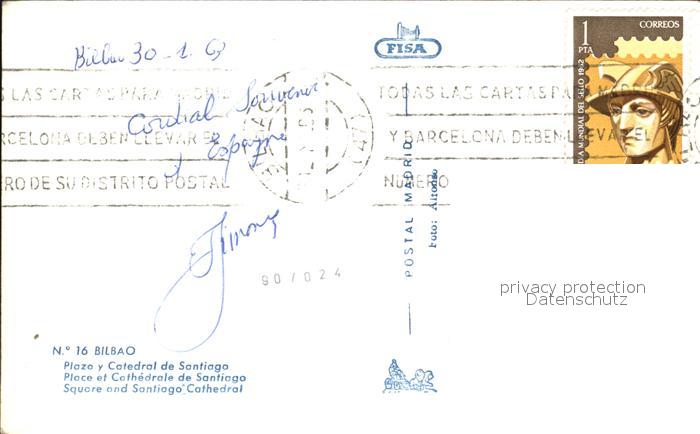 Bilbao 30-1.63
FISA
CORREOS
1
PTA
DIA MUNDIAL DEL SELLO 1962
LAS CARTAS PARA MADRID
TODAS LAS CARTAS PARA MADRID
Cordial Souvenir
BARCELONA DEBEN LLEVAR EL
Y BARCELONA DEBEN LLEVAR EL
d'Espagne
NUMERO DE SU DISTRITO POSTAL
NUMERO
POSTAL MADRID
Foto: Alfonso
90/024
privacy protection
Datenschutz
N.º 16 BILBAO
Plaza y Catedral de Santiago
Place et Cathédrale de Santiago
Square and Santiago Cathedral